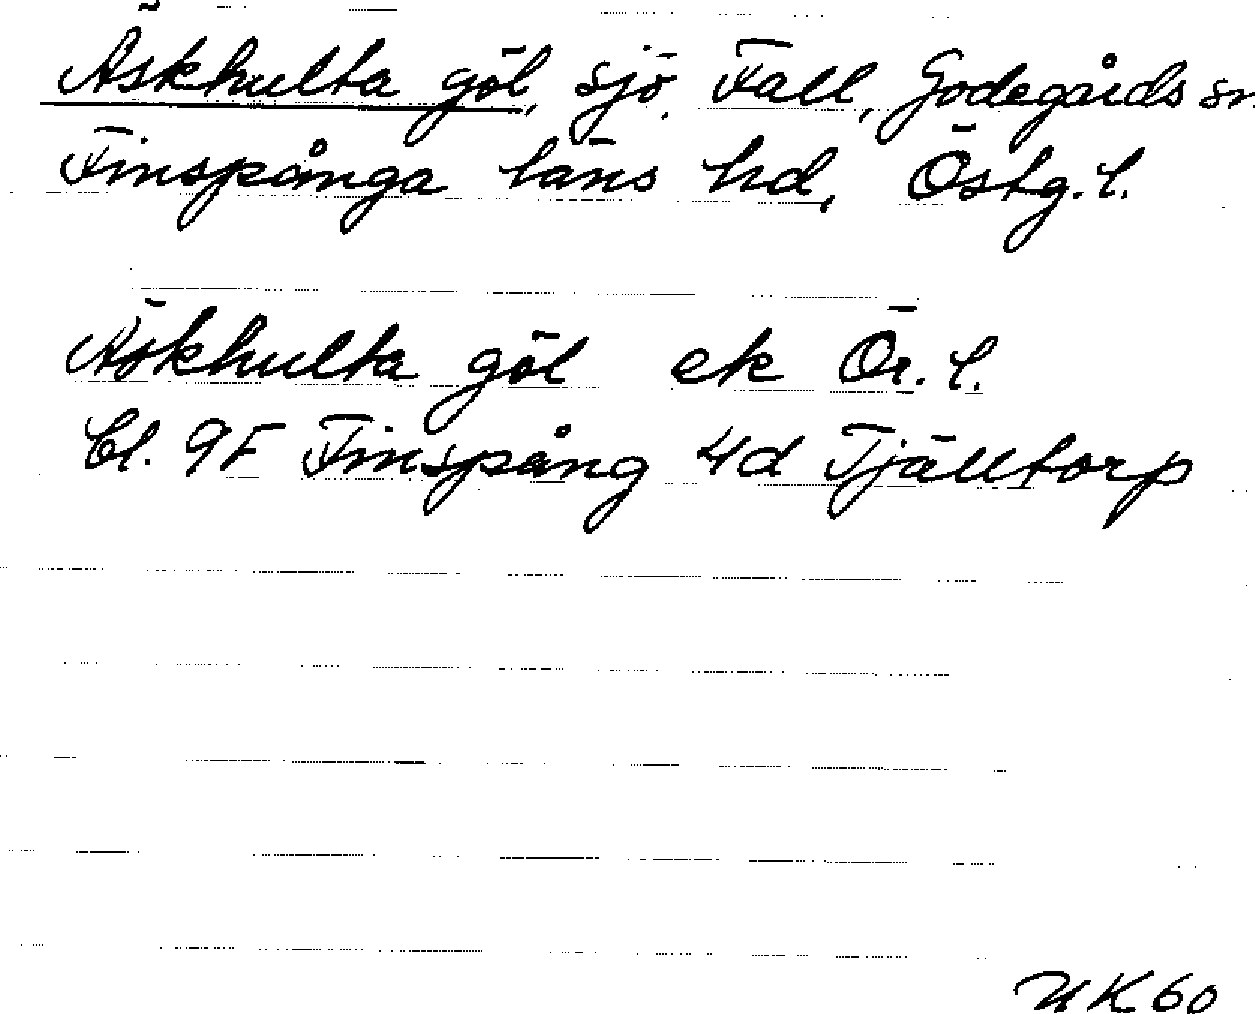 Äskhulta göl, sjö. Fall, Godegårds sn.
Finspånga läns hd, Östg. l.
Äskhulta göl ek Ör. l.
Bl. 9F Finspång 4d Tjälltorp
UK60